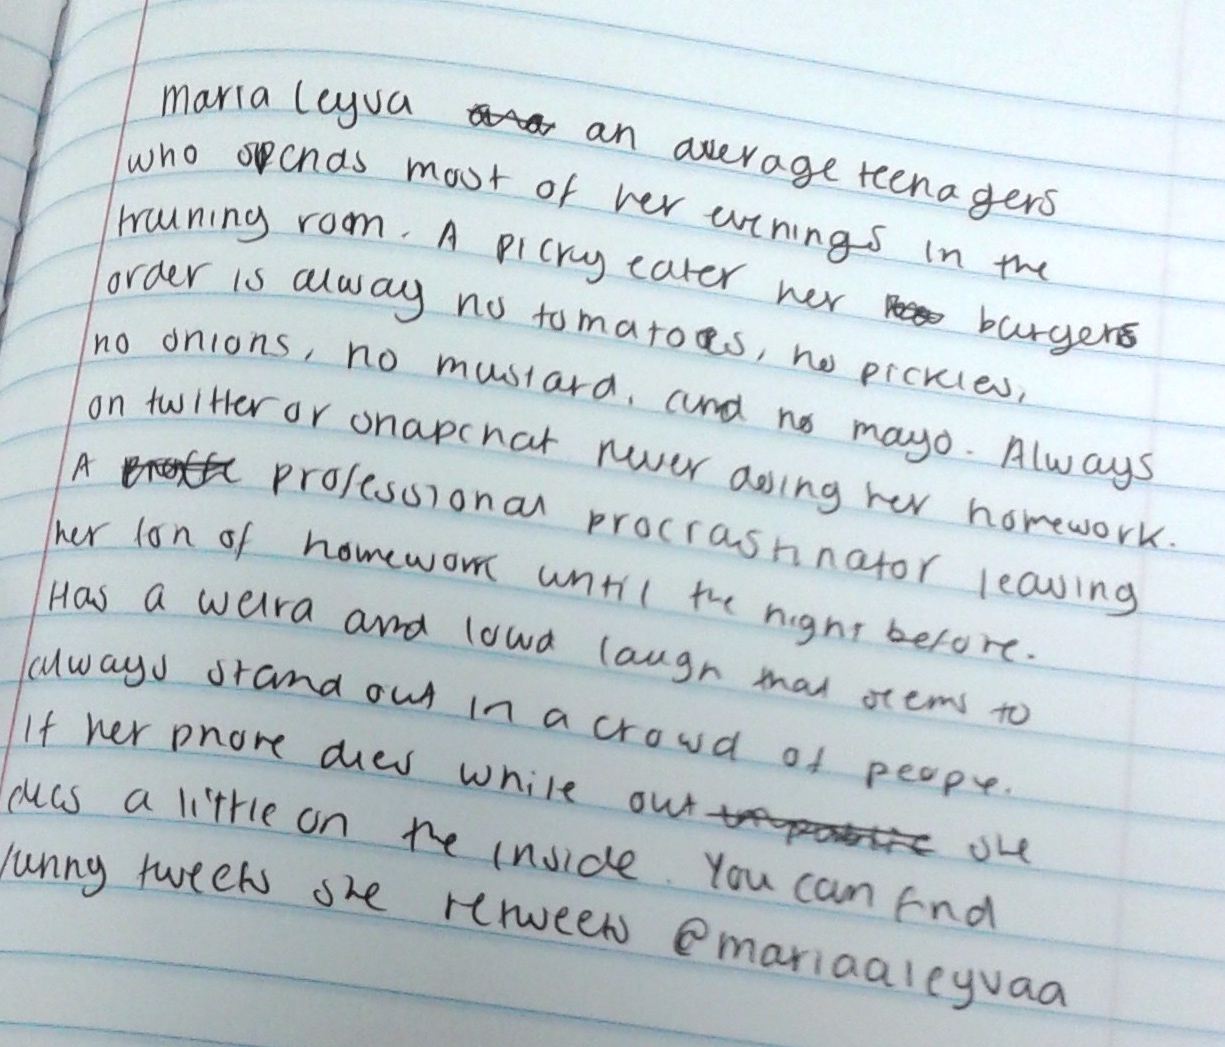 maria leyva an average teenagers
who spends most of her evenings in the
training room. A picky eater her burgers
order is alway no tomatoes, no pickles,
no onions, no mustard, and no mayo. Always
on twitter or snapchat never doing her homework.
A professional procrastinator leaving
her ton of homework until the night before.
Has a weird and loud laugh that seems to
always stand out in a crowd of people.
If her phone dies while out she
dies a little on the inside. You can find
funny tweets she retweets @mariaaleyvaa